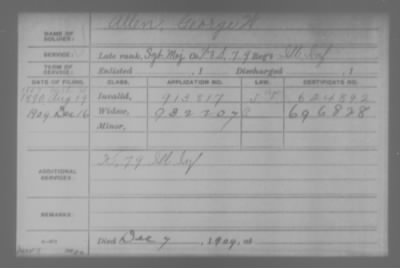 NAME OF SOLDIER: Allen, George W
SERVICE: Late rank, Sgt Maj Co. F&S, 79 Reg't Ill Inf
TERM OF SERVICE: Enlisted , 1 Discharged , 1
DATE OF FILING. CLASS. APPLICATION NO. LAW. CERTIFICATE NO.
1890 Aug 19 Invalid, 913817 624892
1909 Dec 16 Widow, 932707 696828
Minor,
ADDITIONAL SERVICES. K, 79 Ill Inf
REMARKS.
Died Dec 7, 1909, at